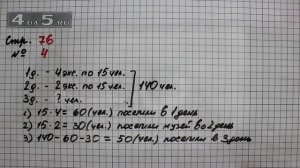 4DA5.RU
Стр. 76
№ 4
1д. – 4 экс. по 15 чел.
2д. – 2 экс. по 15 чел. 140 чел.
3д. – ? чел.
1) 15 · 4 = 60 (чел.) посетили в 1 день
2) 15 · 2 = 30 (чел.) посетили музей во 2 день
3) 140 – 60 – 30 = 50 (чел.) посетили в 3 день